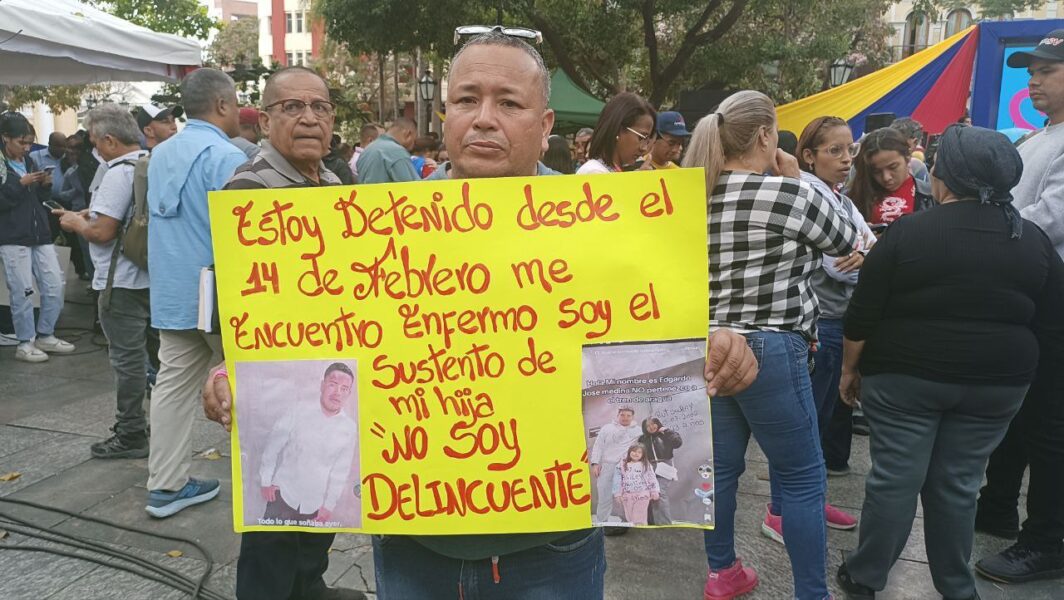 Estoy Detenido desde el
14 de Febrero me
Encuentro Enfermo soy el
Sustento de
mi hija
"NO SOY
DELINCUENTE"
Todo lo que soñaba ayer.
Mi nombre es Edgardo
Jose medina NO pertenezco a
el tren de aragua